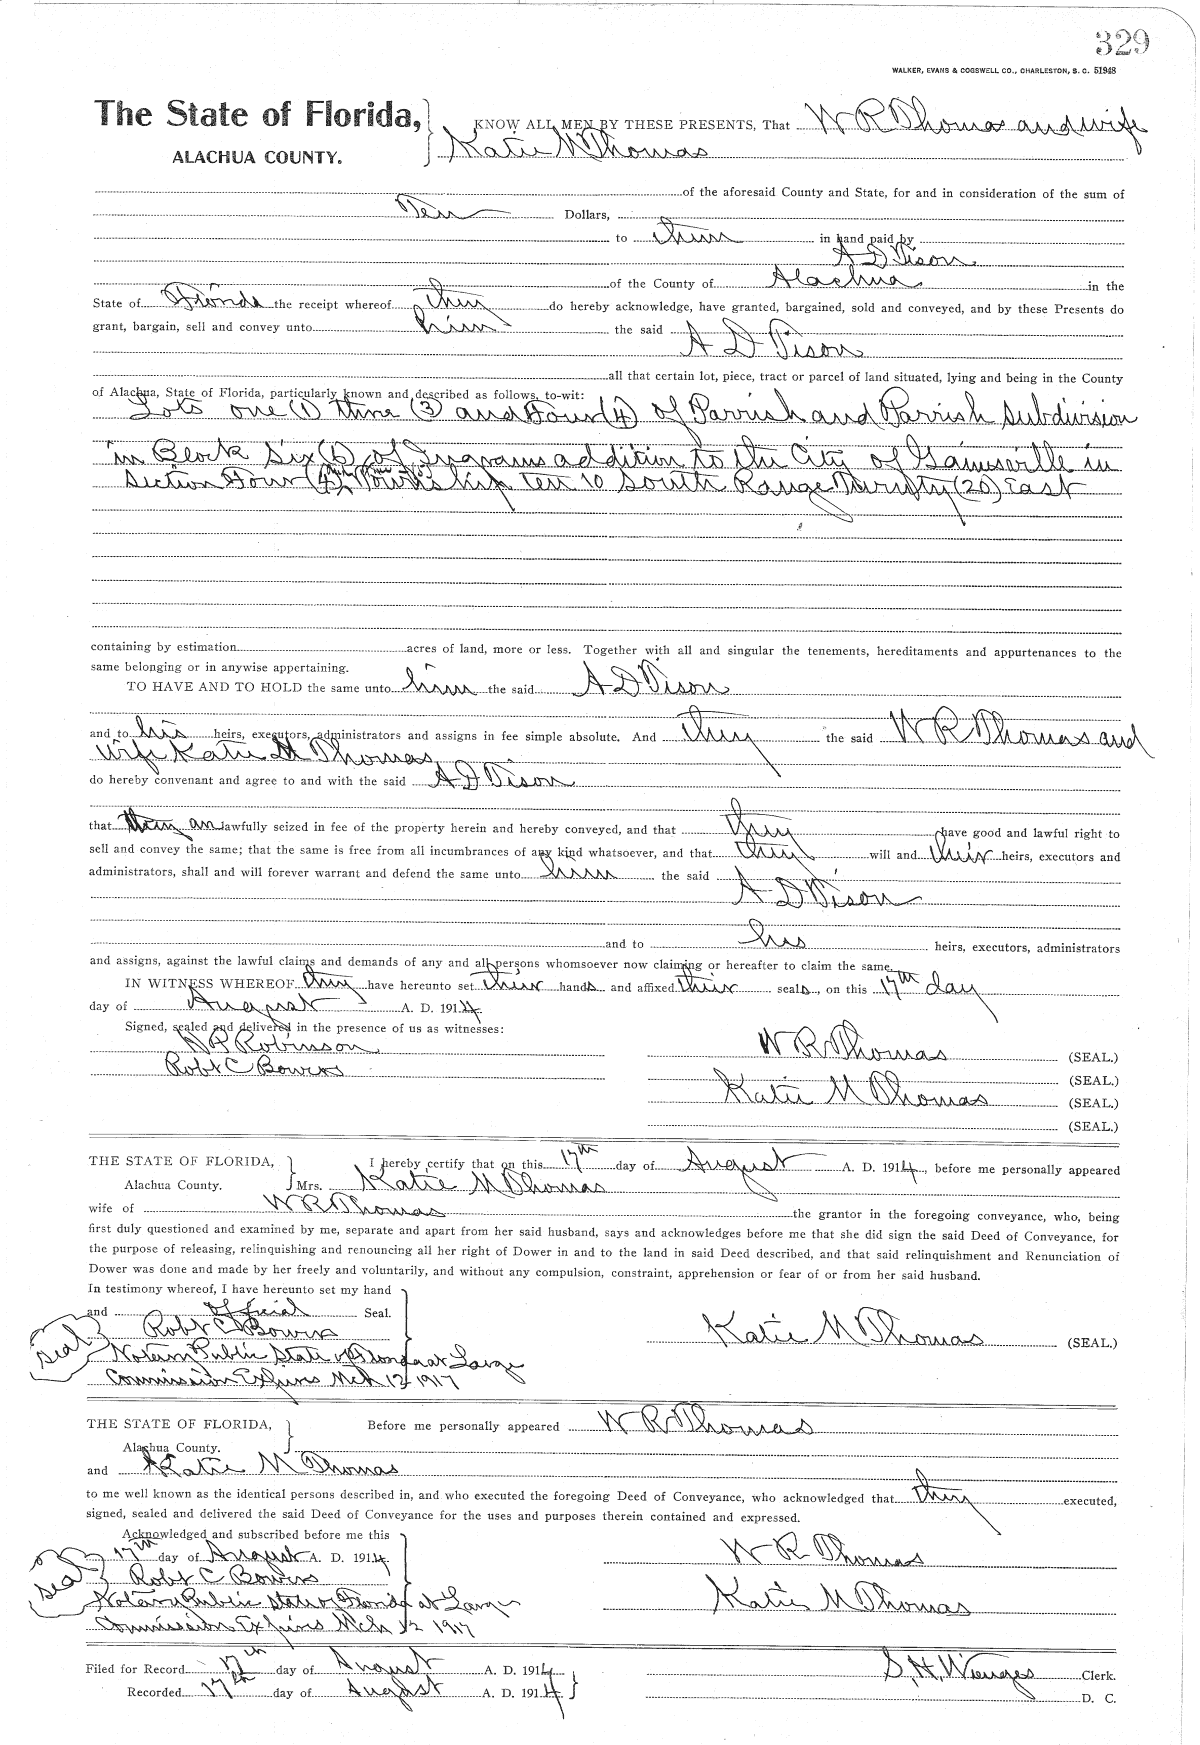 329
WALKER, EVANS & COGSWELL CO., CHARLESTON, S. C. 51948
The State of Florida,
ALACHUA COUNTY.
KNOW ALL MEN BY THESE PRESENTS, That W R Thomas and wife
Katie M Thomas
of the aforesaid County and State, for and in consideration of the sum of
Ten Dollars,
to them in hand paid by
A D Tison
of the County of Alachua in the
State of Florida the receipt whereof they do hereby acknowledge, have granted, bargained, sold and conveyed, and by these Presents do
grant, bargain, sell and convey unto him the said A D Tison
all that certain lot, piece, tract or parcel of land situated, lying and being in the County
of Alachua, State of Florida, particularly known and described as follows, to-wit:
Lots one (1) three (3) and Four (4) of Parrish and Parrish subdivision
in Block Six (6) of Ingrams addition to the City of Gainesville in
Section Four (4) Township ten 10 South Range Twenty (20) East
containing by estimation acres of land, more or less. Together with all and singular the tenements, hereditaments and appurtenances to the
same belonging or in anywise appertaining.
TO HAVE AND TO HOLD the same unto him the said A D Tison
and to his heirs, executors, administrators and assigns in fee simple absolute. And they the said W R Thomas and
wife Katie M Thomas
do hereby convenant and agree to and with the said A D Tison
that they are lawfully seized in fee of the property herein and hereby conveyed, and that they have good and lawful right to
sell and convey the same; that the same is free from all incumbrances of any kind whatsoever, and that they will and their heirs, executors and
administrators, shall and will forever warrant and defend the same unto him the said A D Tison
and to his heirs, executors, administrators
and assigns, against the lawful claims and demands of any and all persons whomsoever now claiming or hereafter to claim the same.
IN WITNESS WHEREOF they have hereunto set their hands and affixed their seals, on this 17th day
day of August A. D. 1914.
Signed, sealed and delivered in the presence of us as witnesses:
Robinson
Robt C Bowers
W R Thomas (SEAL.)
(SEAL.)
Katie M Thomas (SEAL.)
(SEAL.)
THE STATE OF FLORIDA,
Alachua County.
I hereby certify that on this 17th day of August A. D. 1914, before me personally appeared
Mrs. Katie M Thomas
wife of W R Thomas the grantor in the foregoing conveyance, who, being
first duly questioned and examined by me, separate and apart from her said husband, says and acknowledges before me that she did sign the said Deed of Conveyance, for
the purpose of releasing, relinquishing and renouncing all her right of Dower in and to the land in said Deed described, and that said relinquishment and Renunciation of
Dower was done and made by her freely and voluntarily, and without any compulsion, constraint, apprehension or fear of or from her said husband.
In testimony whereof, I have hereunto set my hand
and official Seal.
seal
Robt C Bowers
Notary Public State of Florida at Large
Commission Expires Mch 12 1917
Katie M Thomas (SEAL.)
THE STATE OF FLORIDA,
Alachua County.
Before me personally appeared W R Thomas
and Katie M Thomas
to me well known as the identical persons described in, and who executed the foregoing Deed of Conveyance, who acknowledged that they executed,
signed, sealed and delivered the said Deed of Conveyance for the uses and purposes therein contained and expressed.
Acknowledged and subscribed before me this
17th day of August A. D. 1914.
seal
Robt C Bowers
Notary Public State of Florida at Large
Commission Expires Mch 12 1917
W R Thomas
Katie M Thomas
Filed for Record 17th day of August A. D. 1914
Recorded 17th day of August A. D. 1914.
S. H. Wienges Clerk.
D. C.